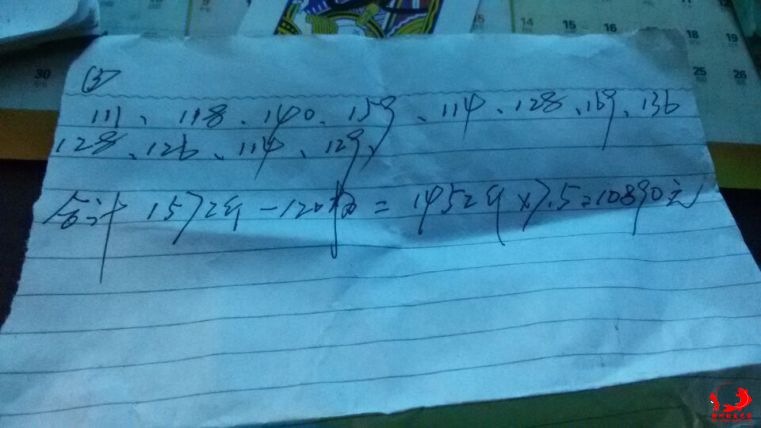 14 15 16
18 19
30
25 26
③
111、118、140、159、114、128、169、136
128、126、114、129、
合计 1572斤-120 = 1452斤×7.5=10890元